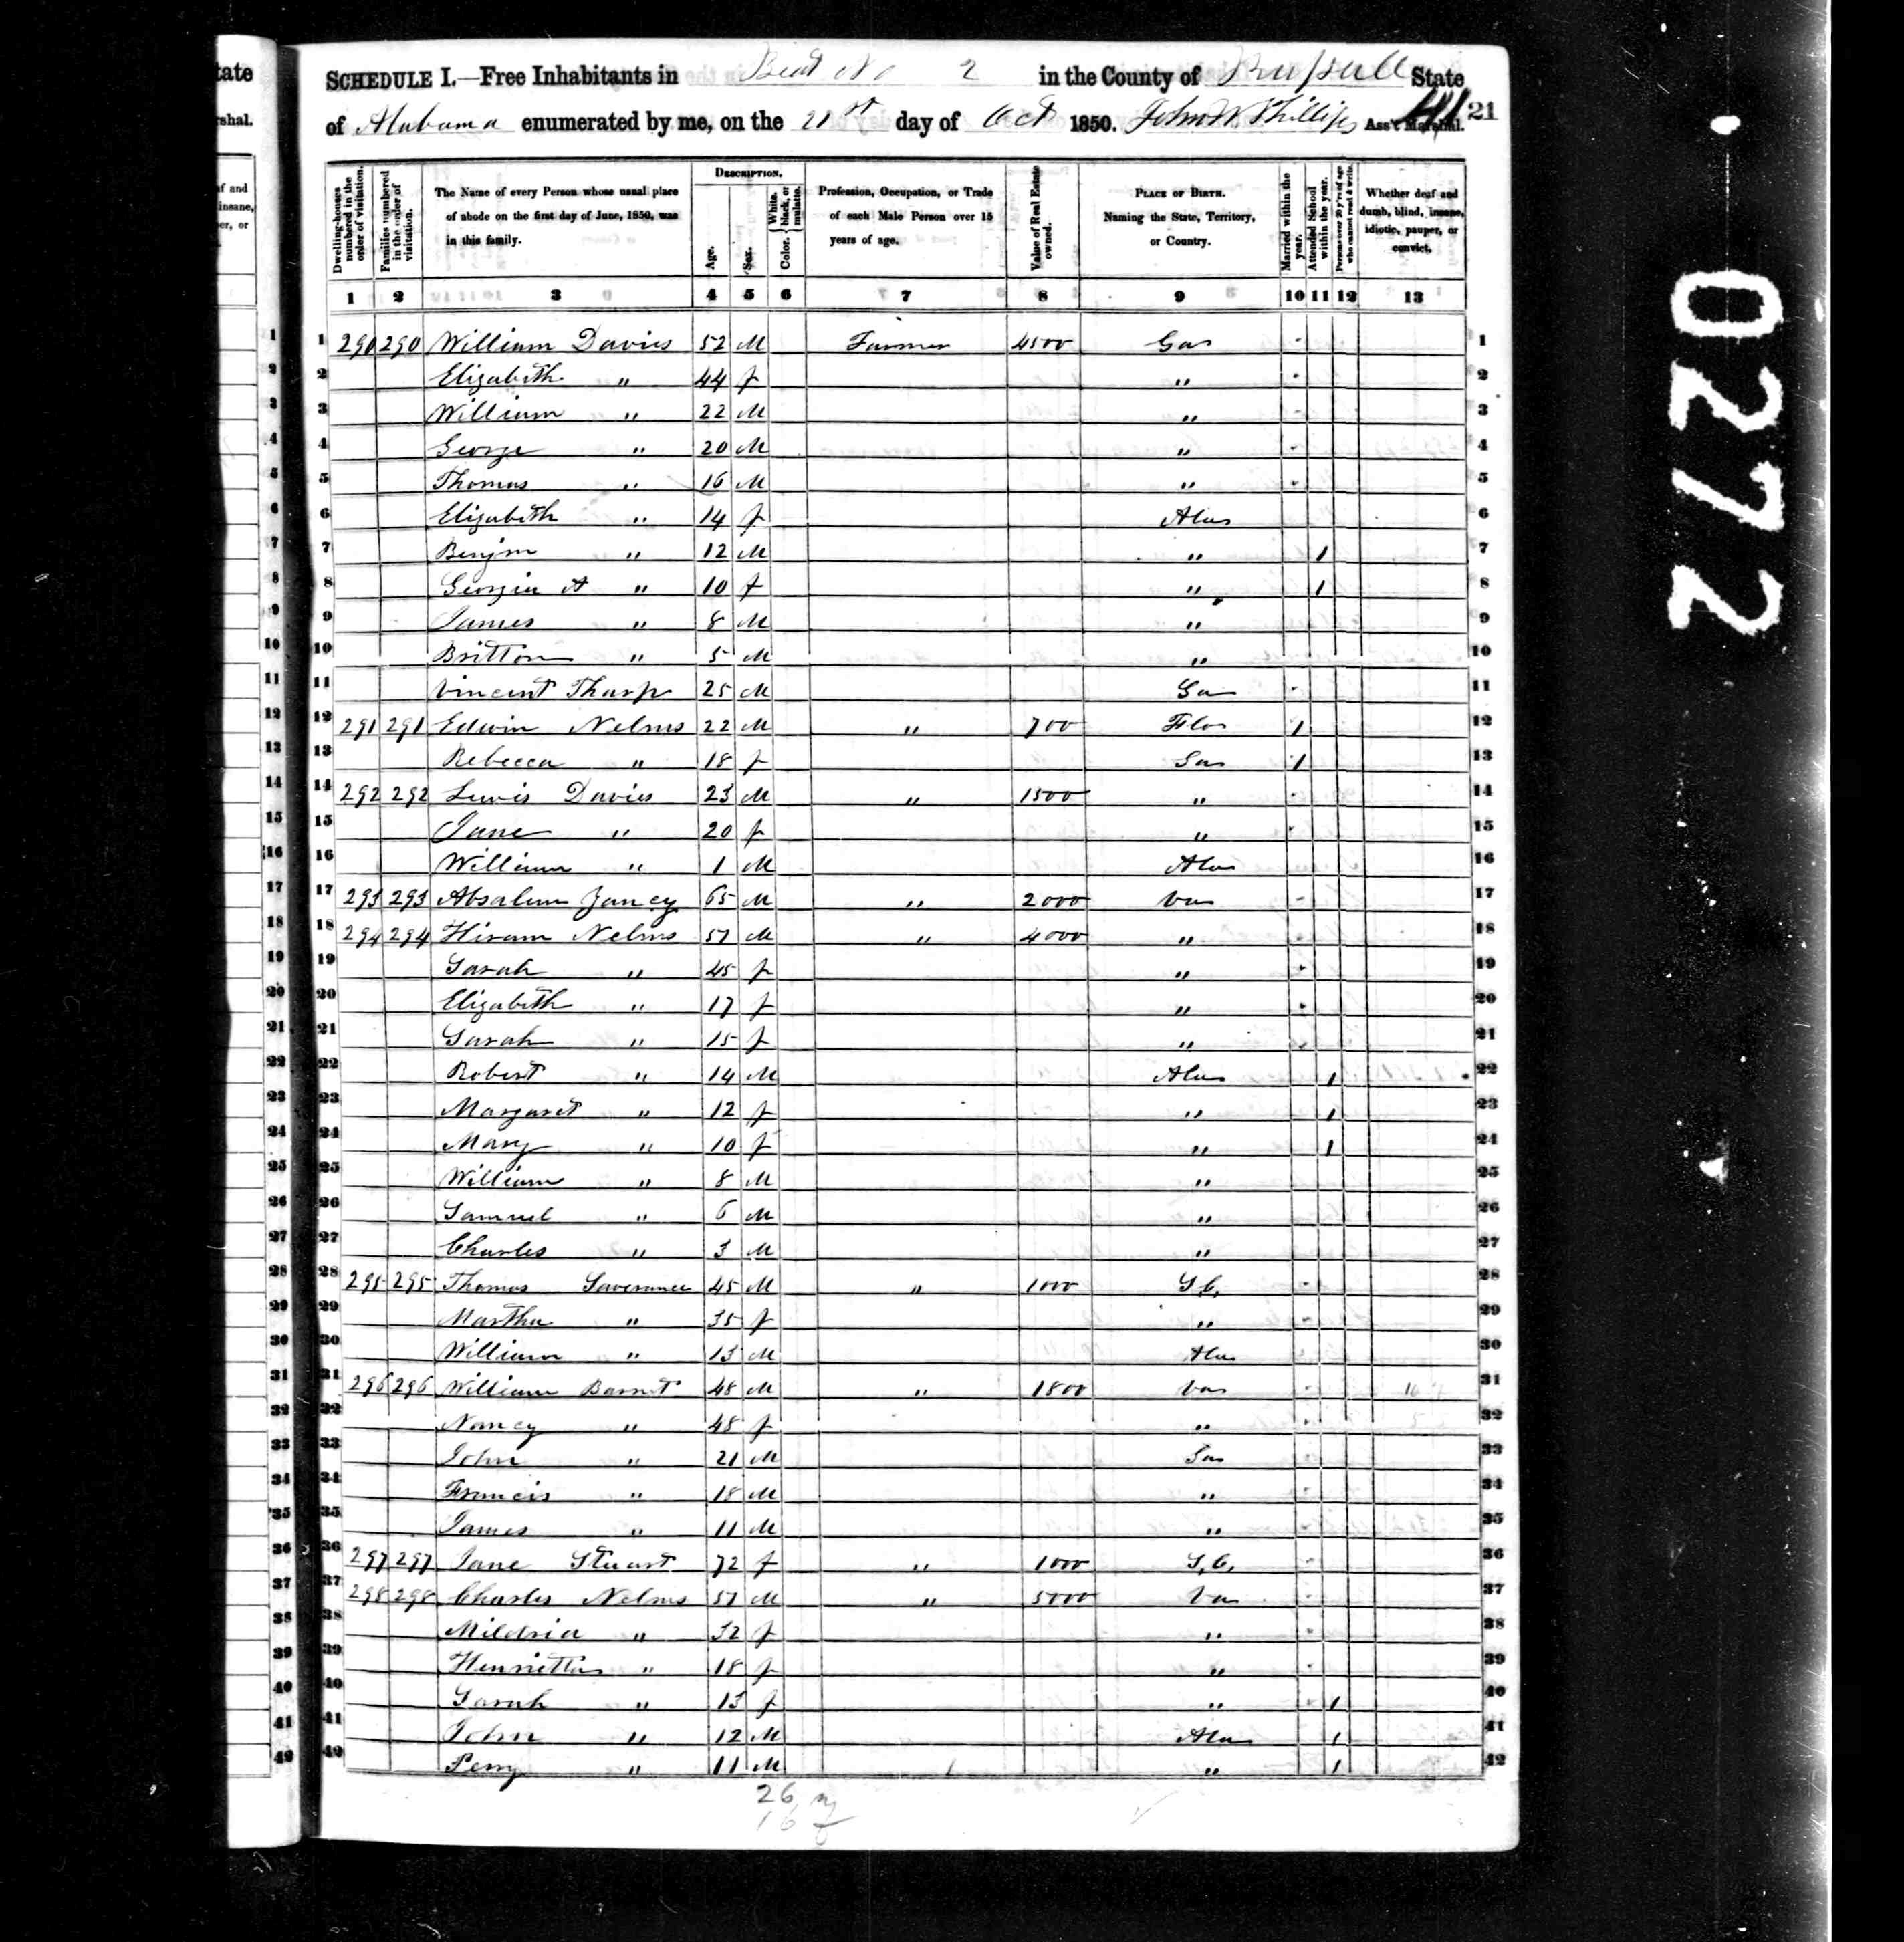 tate
rshal.
if and
insane,
er, or
SCHEDULE I.—Free Inhabitants in Beat No 2 in the County of Russell State
of Alabama enumerated by me, on the 21st day of Oct 1850. John W. Phillips Ass't Marshal. 21
Dwelling-houses numbered in the order of visitation.
Families numbered in the order of visitation.
The Name of every Person whose usual place of abode on the first day of June, 1850, was in this family.
DESCRIPTION.
Age.
Sex.
Color. White, black, or mulatto.
Profession, Occupation, or Trade of each Male Person over 15 years of age.
Value of Real Estate owned.
PLACE OF BIRTH. Naming the State, Territory, or Country.
Married within the year.
Attended School within the year.
Persons over 20 y'rs of age who cannot read & write.
Whether deaf and dumb, blind, insane, idiotic, pauper, or convict.
1 2 3 4 5 6 7 8 9 10 11 12 13
1 290 290 William Davies 52 M Farmer 4500 Ga 1
2 Elizabeth " 44 f " 2
3 William " 22 M " 3
4 George " 20 M " 4
5 Thomas " 16 M " 5
6 Elizabeth " 14 f Ala 6
7 Benjm " 12 M " 1 7
8 Georgia A " 10 f " 1 8
9 James " 8 M " 9
10 Britton " 5 M " 10
11 Vincent Tharp 25 M Ga 11
12 291 291 Edwin Nelms 22 M " 700 Fla 1 12
13 Rebecca " 18 f Ga 1 13
14 292 292 Lewis Davies 23 M " 1500 " 14
15 Jane " 20 f " 15
16 William " 1 M Ala 16
17 293 293 Absalum Yancy 65 M " 2000 Va 17
18 294 294 Hiram Nelms 51 M " 4000 " 18
19 Sarah " 45 f " 19
20 Elizabeth " 17 f " 20
21 Sarah " 15 f " 21
22 Robert " 14 M Ala 1 22
23 Margaret " 12 f " 1 23
24 Mary " 10 f " 1 24
25 William " 8 M " 25
26 Samuel " 6 M " 26
27 Charles " 3 M " 27
28 295 295 Thomas Saverance 45 M " 1000 S.C. 28
29 Martha " 35 f " 29
30 William " 13 M Ala 30
31 296 296 William Barnet 48 M " 1800 Va 31
32 Nancy " 48 f " 32
33 John " 21 M Ga 33
34 Francis " 18 M " 34
35 James " 11 M " 35
36 297 297 Jane Stuart 72 f " 1000 S.C. 36
37 298 298 Charles Nelms 51 M " 5000 Va 37
38 Mildria " 32 f " 38
39 Henrietta " 18 f " 39
40 Sarah " 13 f " 1 40
41 John " 12 M Ala 1 41
42 Perry " 11 M " 1 42
26 m
16 f
0272